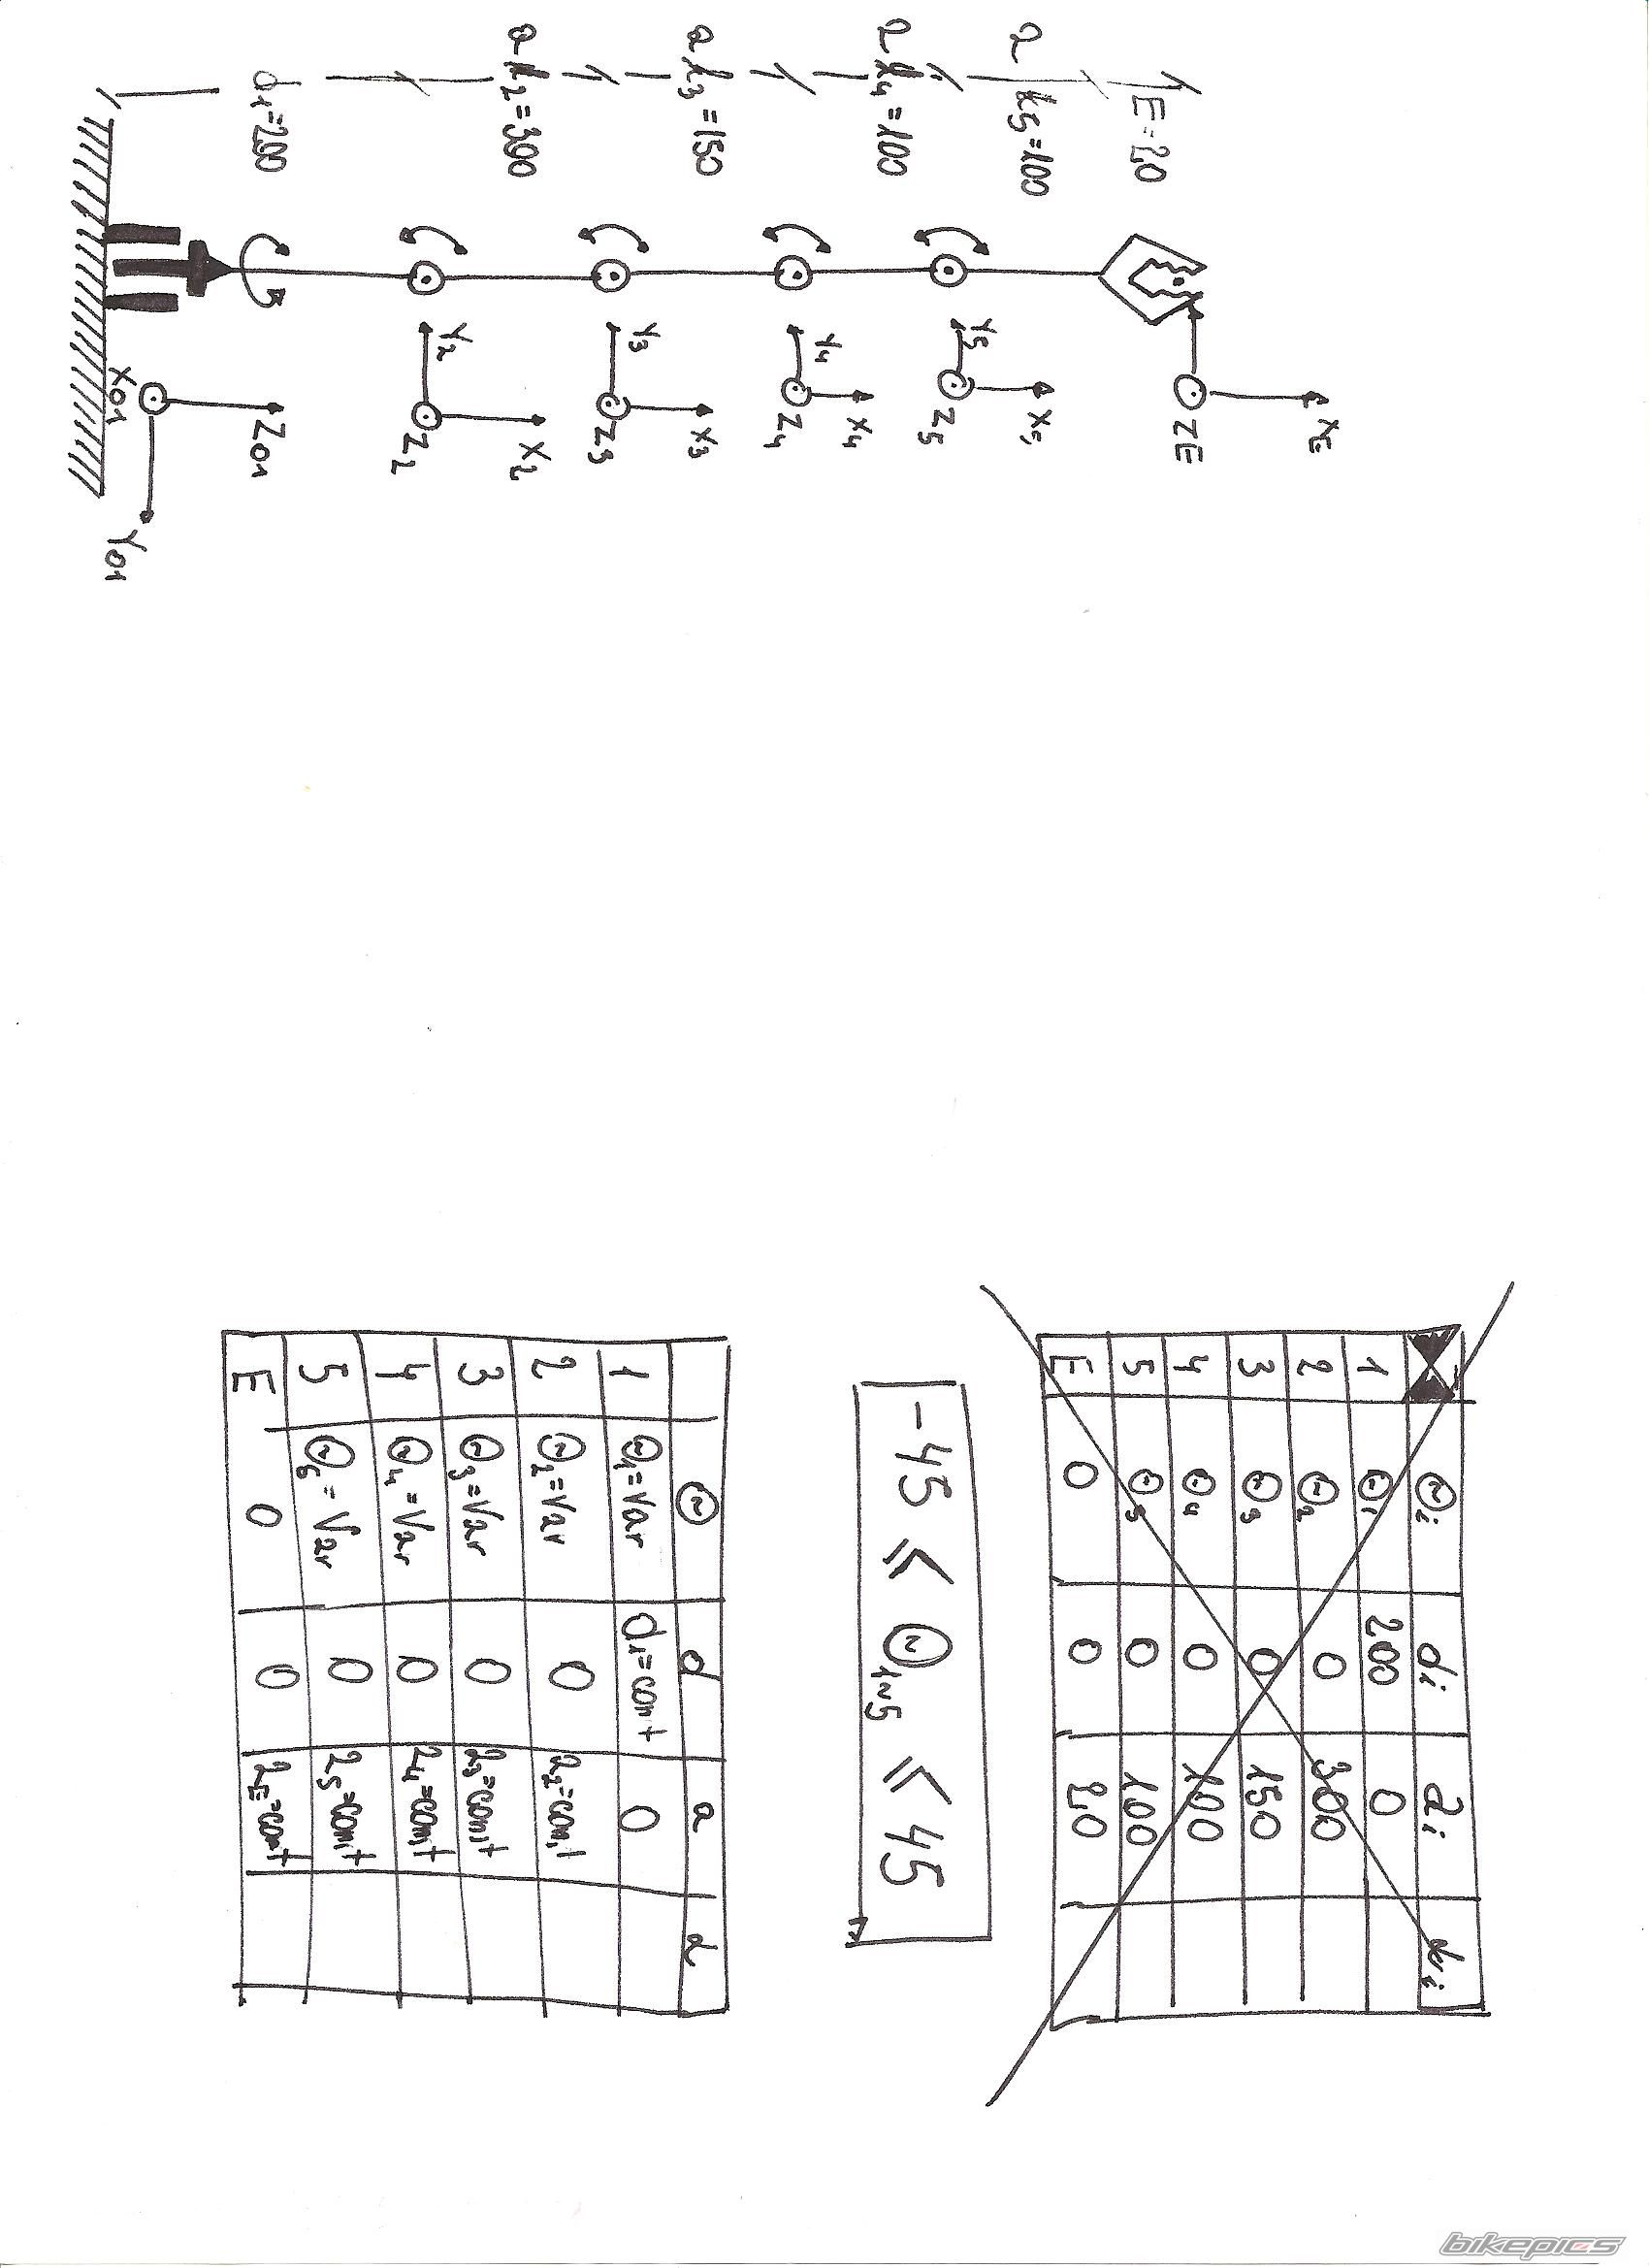 E = 20
a5 = 100
a4 = 100
a3 = 150
a2 = 300
d1 = 200
XE
ZE
X5
Y5
Z5
X4
Y4
Z4
X3
Y3
Z3
X2
Y2
Z2
Z01
X01
Y01
Θi di ai αi
1 Θ1 200 0
2 Θ2 0 300
3 Θ3 0 150
4 Θ4 0 100
5 Θ5 0 100
E 0 0 20
-45 ≤ Θ1~5 ≤ 45
Θ d a α
1 Θ1=Var d1=const 0
2 Θ2=Var 0 a2=const
3 Θ3=Var 0 a3=const
4 Θ4=Var 0 a4=const
5 Θ5=Var 0 a5=const
E 0 0 aE=const
bikepics